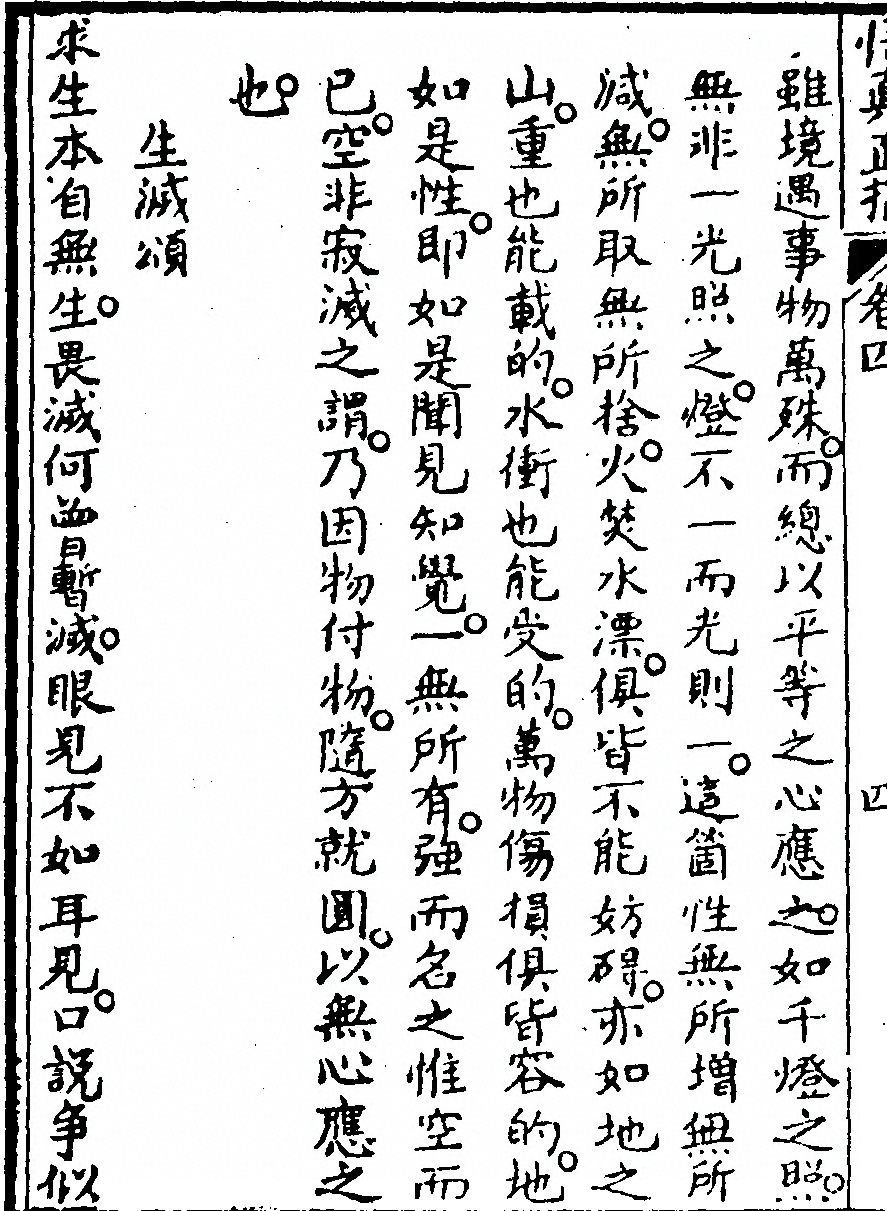 悟真正指 卷四 四
雖境遇事物萬殊。而總以平等之心應之。如千燈之照。
無非一光照之。燈不一而光則一。這箇性無所增無所
減。無所取無所捨。火焚水漂。俱皆不能妨碍。亦如地之
山。重也能載的。水衝也能受的。萬物傷損俱皆容的。地
如是性。即如是聞見知覺。一無所有。強而名之惟空而
已。空非寂滅之謂。乃因物付物。隨方就圓。以無心應之
也。
生滅頌
求生本自無生。畏滅何曾暫滅。眼見不如耳見。口說争似